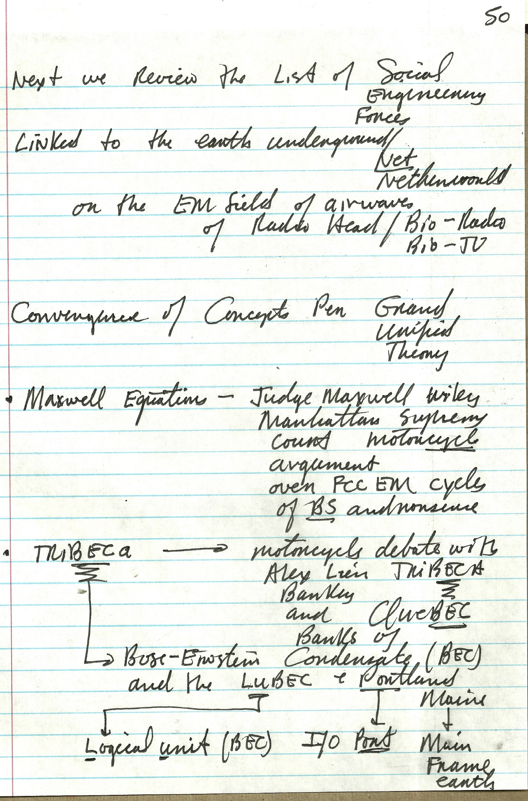 50
Next we Review the List of Social
Engineering
Forces
Linked to the earth underground/
Net
Netherworld
on the EM field of airwaves
of Radio Head / Bio-Radio
Bio-TV
Convergence of Concepts Per Grand
Unified
Theory
• Maxwell Equation - Judge Maxwell Wiley
Manhattan Supreme
Court motorcycle
argument
over FCC EM cycles
of BS and nonsense
• TRIBECa → motorcycle debate with
Alex Lien TRIBECA
Banker
and QueBEC
Banks of
Bose-Einstein Condensate (BEC)
and the LUBEC & Portland
Maine
Logical unit (BEC) I/O Port Main
Frame
earth